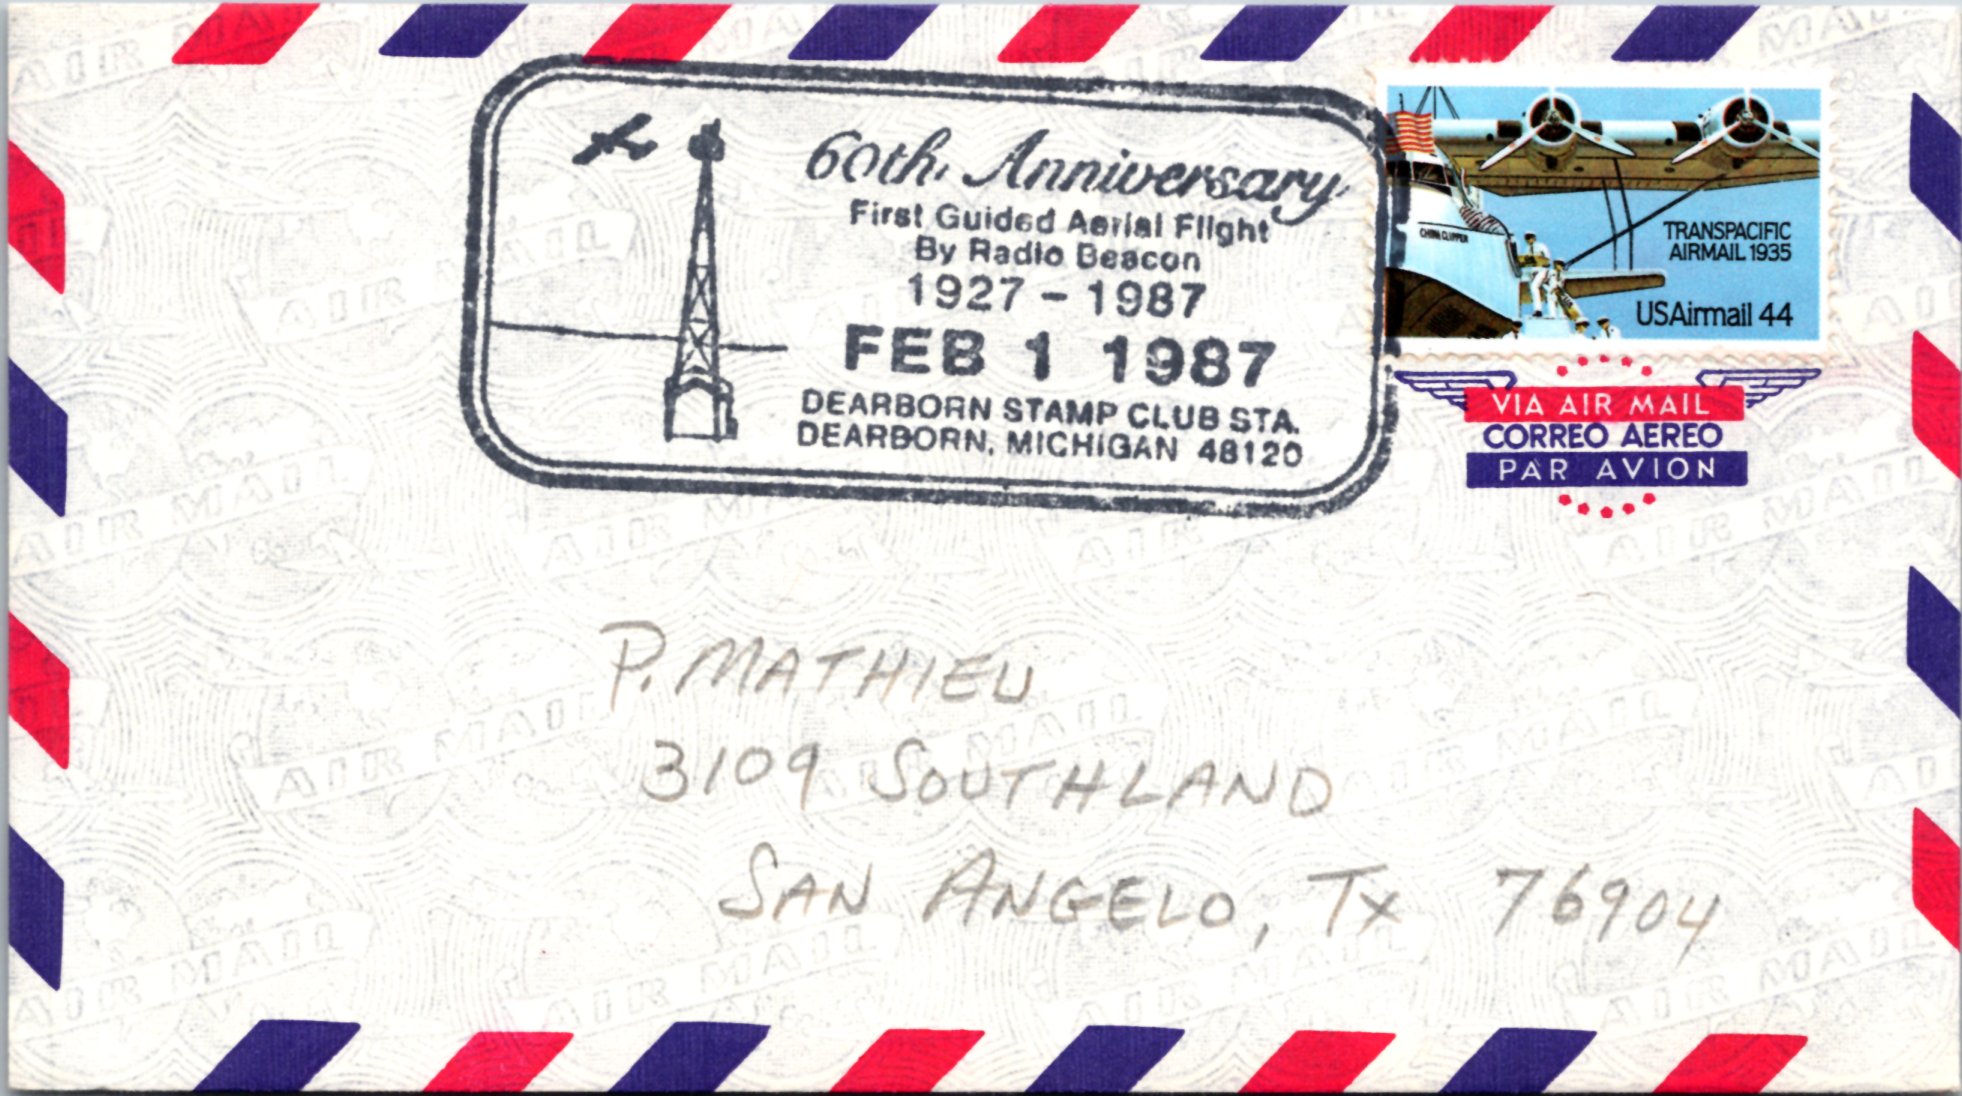 60th Anniversary
First Guided Aerial Flight
By Radio Beacon
1927 - 1987
FEB 1 1987
DEARBORN STAMP CLUB STA.
DEARBORN, MICHIGAN 48120
CHINA CLIPPER
TRANSPACIFIC
AIRMAIL 1935
USAirmail 44
VIA AIR MAIL
CORREO AEREO
PAR AVION
P. MATHIEU
3109 SOUTHLAND
SAN ANGELO, TX 76904
AIR MAIL